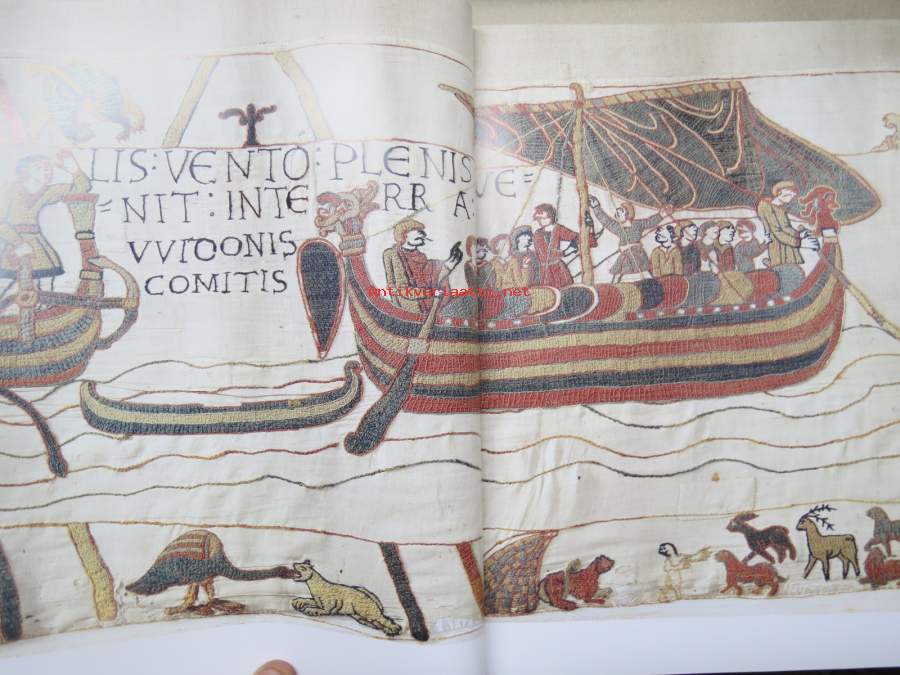 LIS : VENTO : PLENIS VE=
=NIT : INTE RR A :
VVIDONIS
COMITIS
antikvariaatti.net